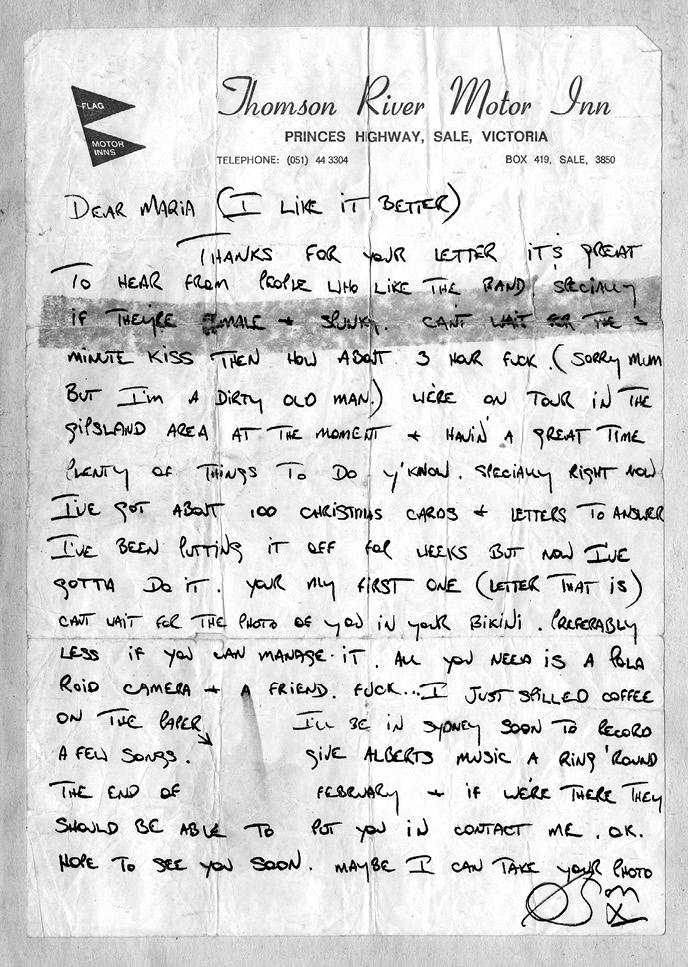 FLAG
MOTOR
INNS
Thomson River Motor Inn
PRINCES HIGHWAY, SALE, VICTORIA
TELEPHONE: (051) 44 3304
BOX 419, SALE, 3850
DEAR MARIA (I LIKE IT BETTER)
THANKS FOR YOUR LETTER IT'S GREAT
TO HEAR FROM PEOPLE WHO LIKE THE BAND SPECIALLY
IF THEY'RE FEMALE + SPUNKY. CAN'T WAIT FOR THE 3
MINUTE KISS THEN HOW ABOUT 3 HOUR FUCK. (SORRY MUM
BUT I'M A DIRTY OLD MAN.) WE'RE ON TOUR IN THE
GIPSLAND AREA AT THE MOMENT + HAVIN' A GREAT TIME
PLENTY OF THINGS TO DO Y'KNOW. SPECIALLY RIGHT NOW
I'VE GOT ABOUT 100 CHRISTMAS CARDS + LETTERS TO ANSWER
I'VE BEEN PUTTING IT OFF FOR WEEKS BUT NOW I'VE
GOTTA DO IT. YOUR MY FIRST ONE (LETTER THAT IS)
CANT WAIT FOR THE PHOTO OF YOU IN YOUR BIKINI. PREFERABLY
LESS IF YOU CAN MANAGE IT. ALL YOU NEED IS A POLA
ROID CAMERA + A FRIEND. FUCK...I JUST SPILLED COFFEE
ON THE PAPER I'LL BE IN SYDNEY SOON TO RECORD
A FEW SONGS. GIVE ALBERTS MUSIC A RING 'ROUND
THE END OF FEBRUARY + IF WE'RE THERE THEY
SHOULD BE ABLE TO PUT YOU IN CONTACT ME. OK.
HOPE TO SEE YOU SOON. MAYBE I CAN TAKE YOUR PHOTO
X